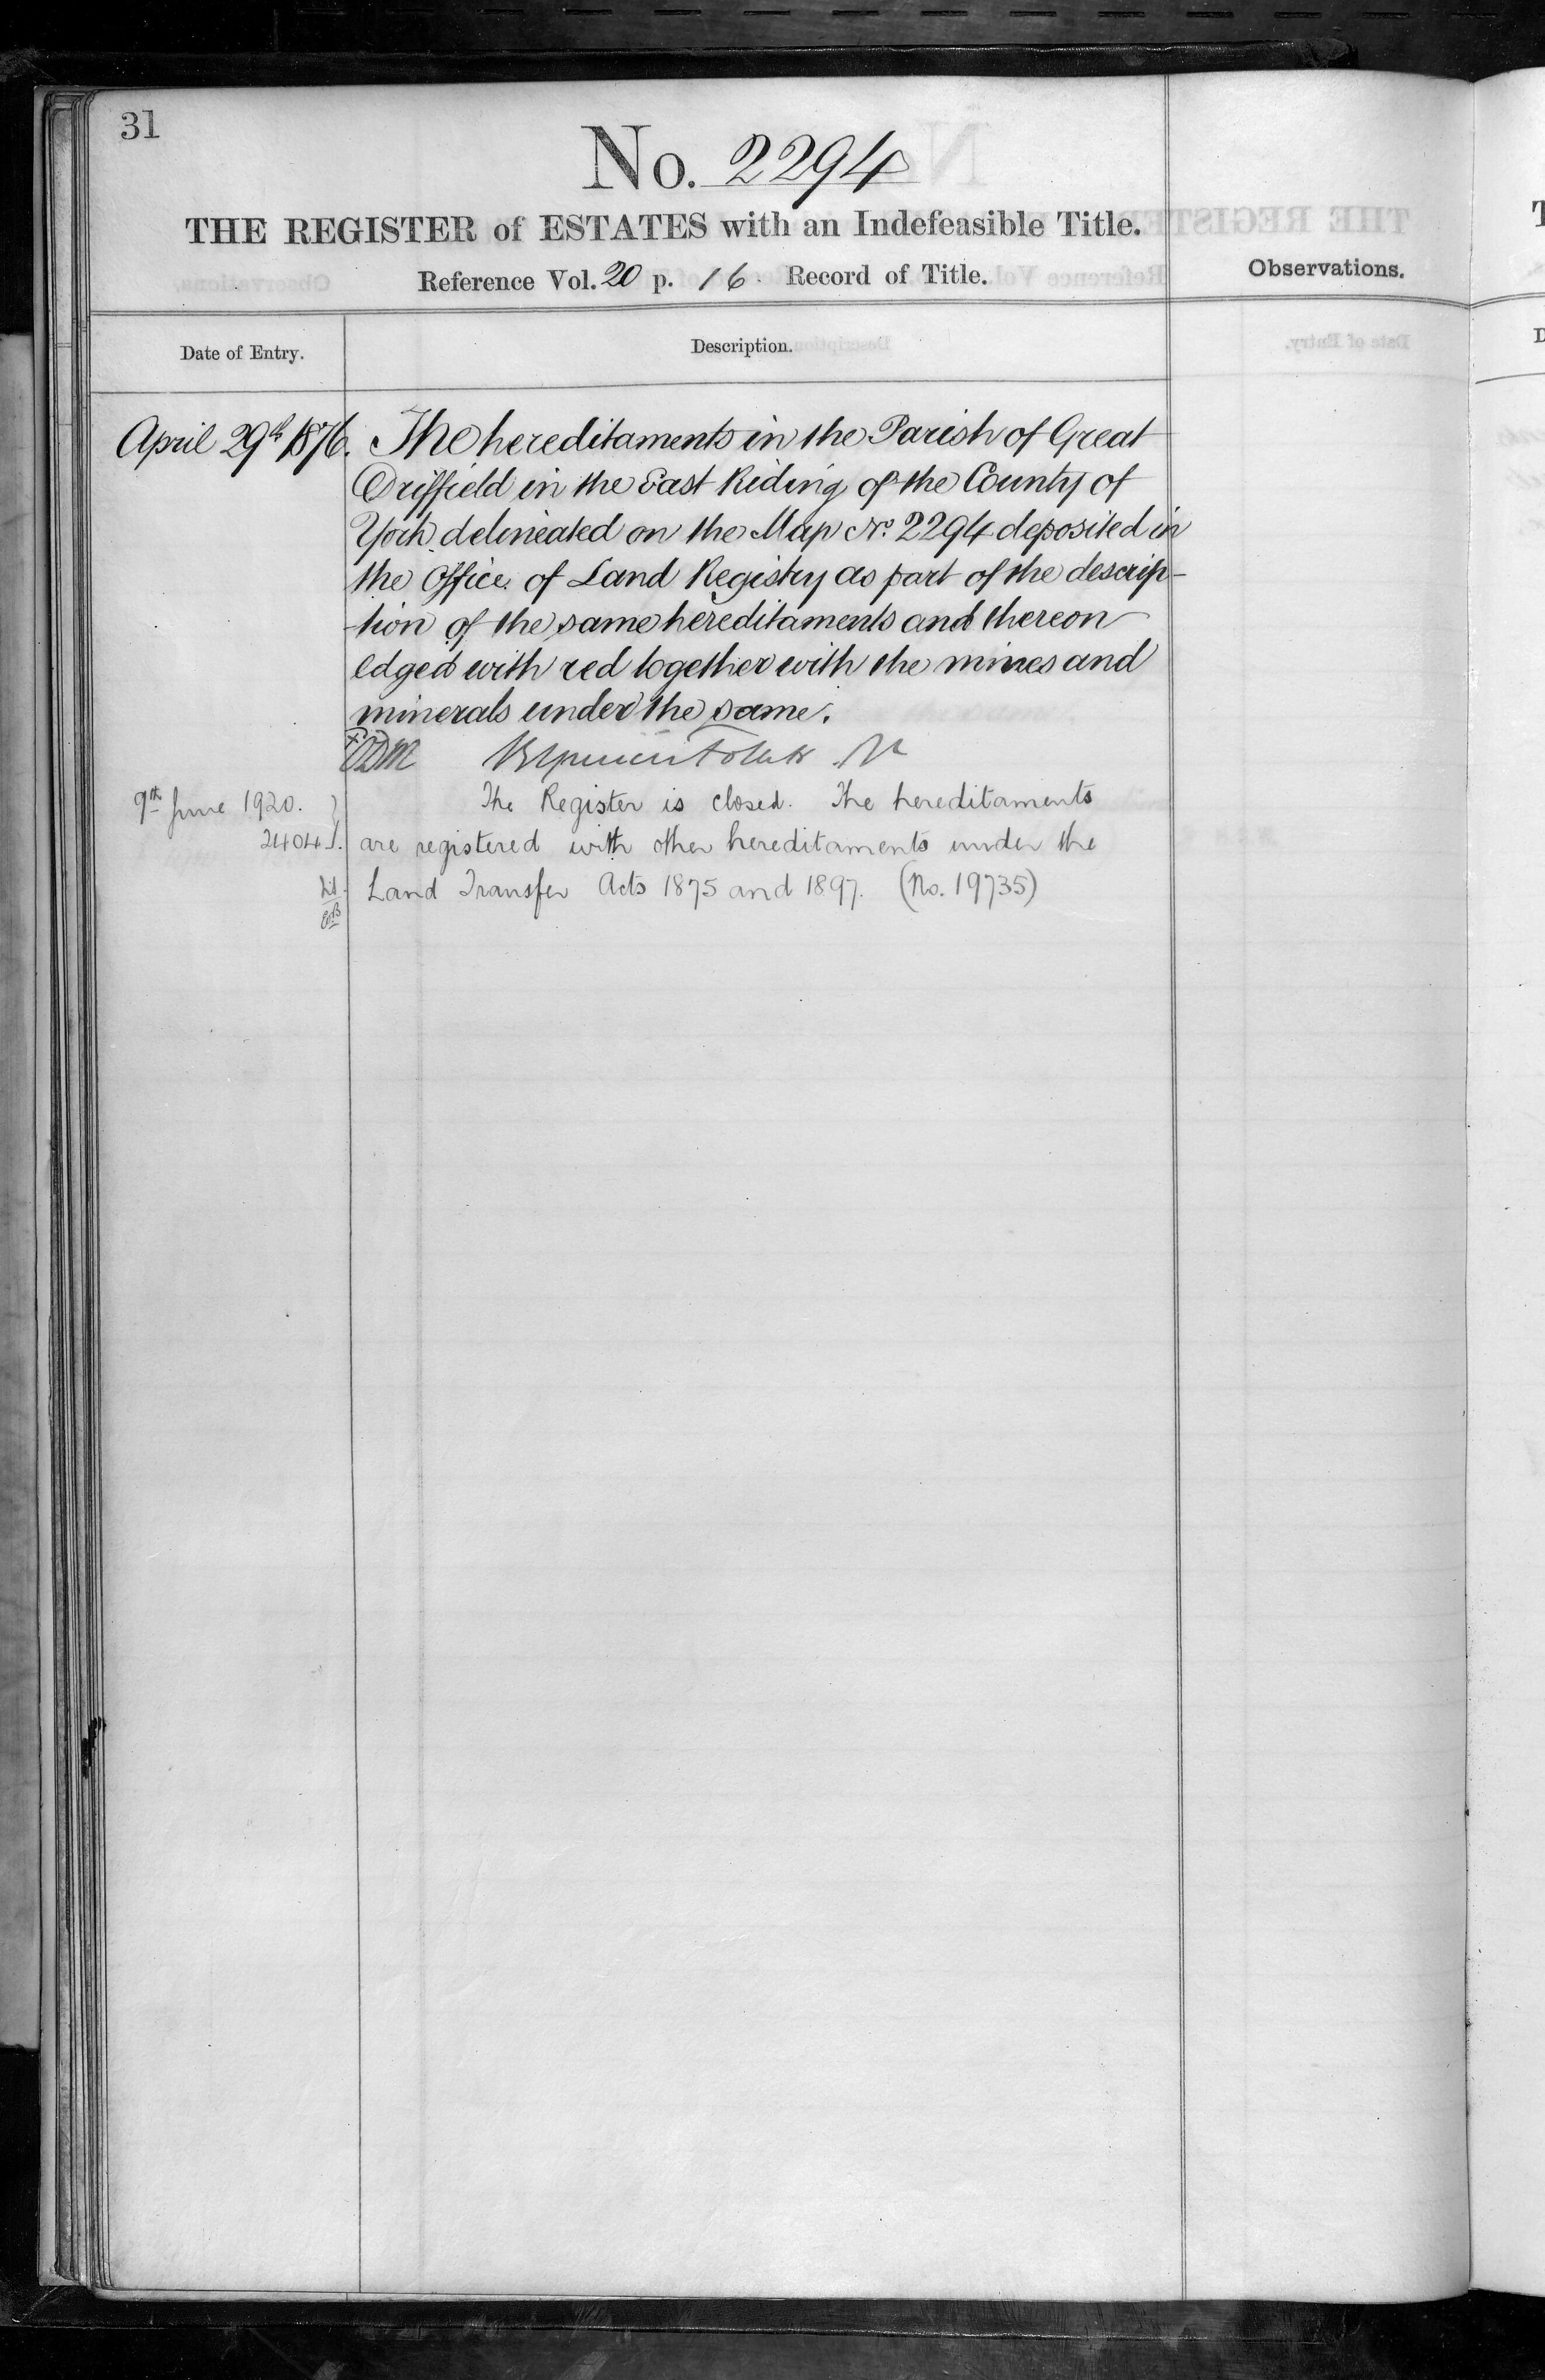 31
No. 2294
THE REGISTER of ESTATES with an Indefeasible Title.
Reference Vol. 20 p. 16. Record of Title.
Observations.
Date of Entry.
Description.
April 29th 1876. The hereditaments in the Parish of Great
Driffield in the East Riding of the County of
York delineated on the Map No. 2294 deposited in
the Office of Land Registry as part of the descrip-
-tion of the same hereditaments and thereon
edged with red together with the mines and
minerals under the same.
9th June 1920. The Register is closed. The hereditaments
2404 are registered with other hereditaments under the
Land Transfer Acts 1875 and 1897. (No. 19735)